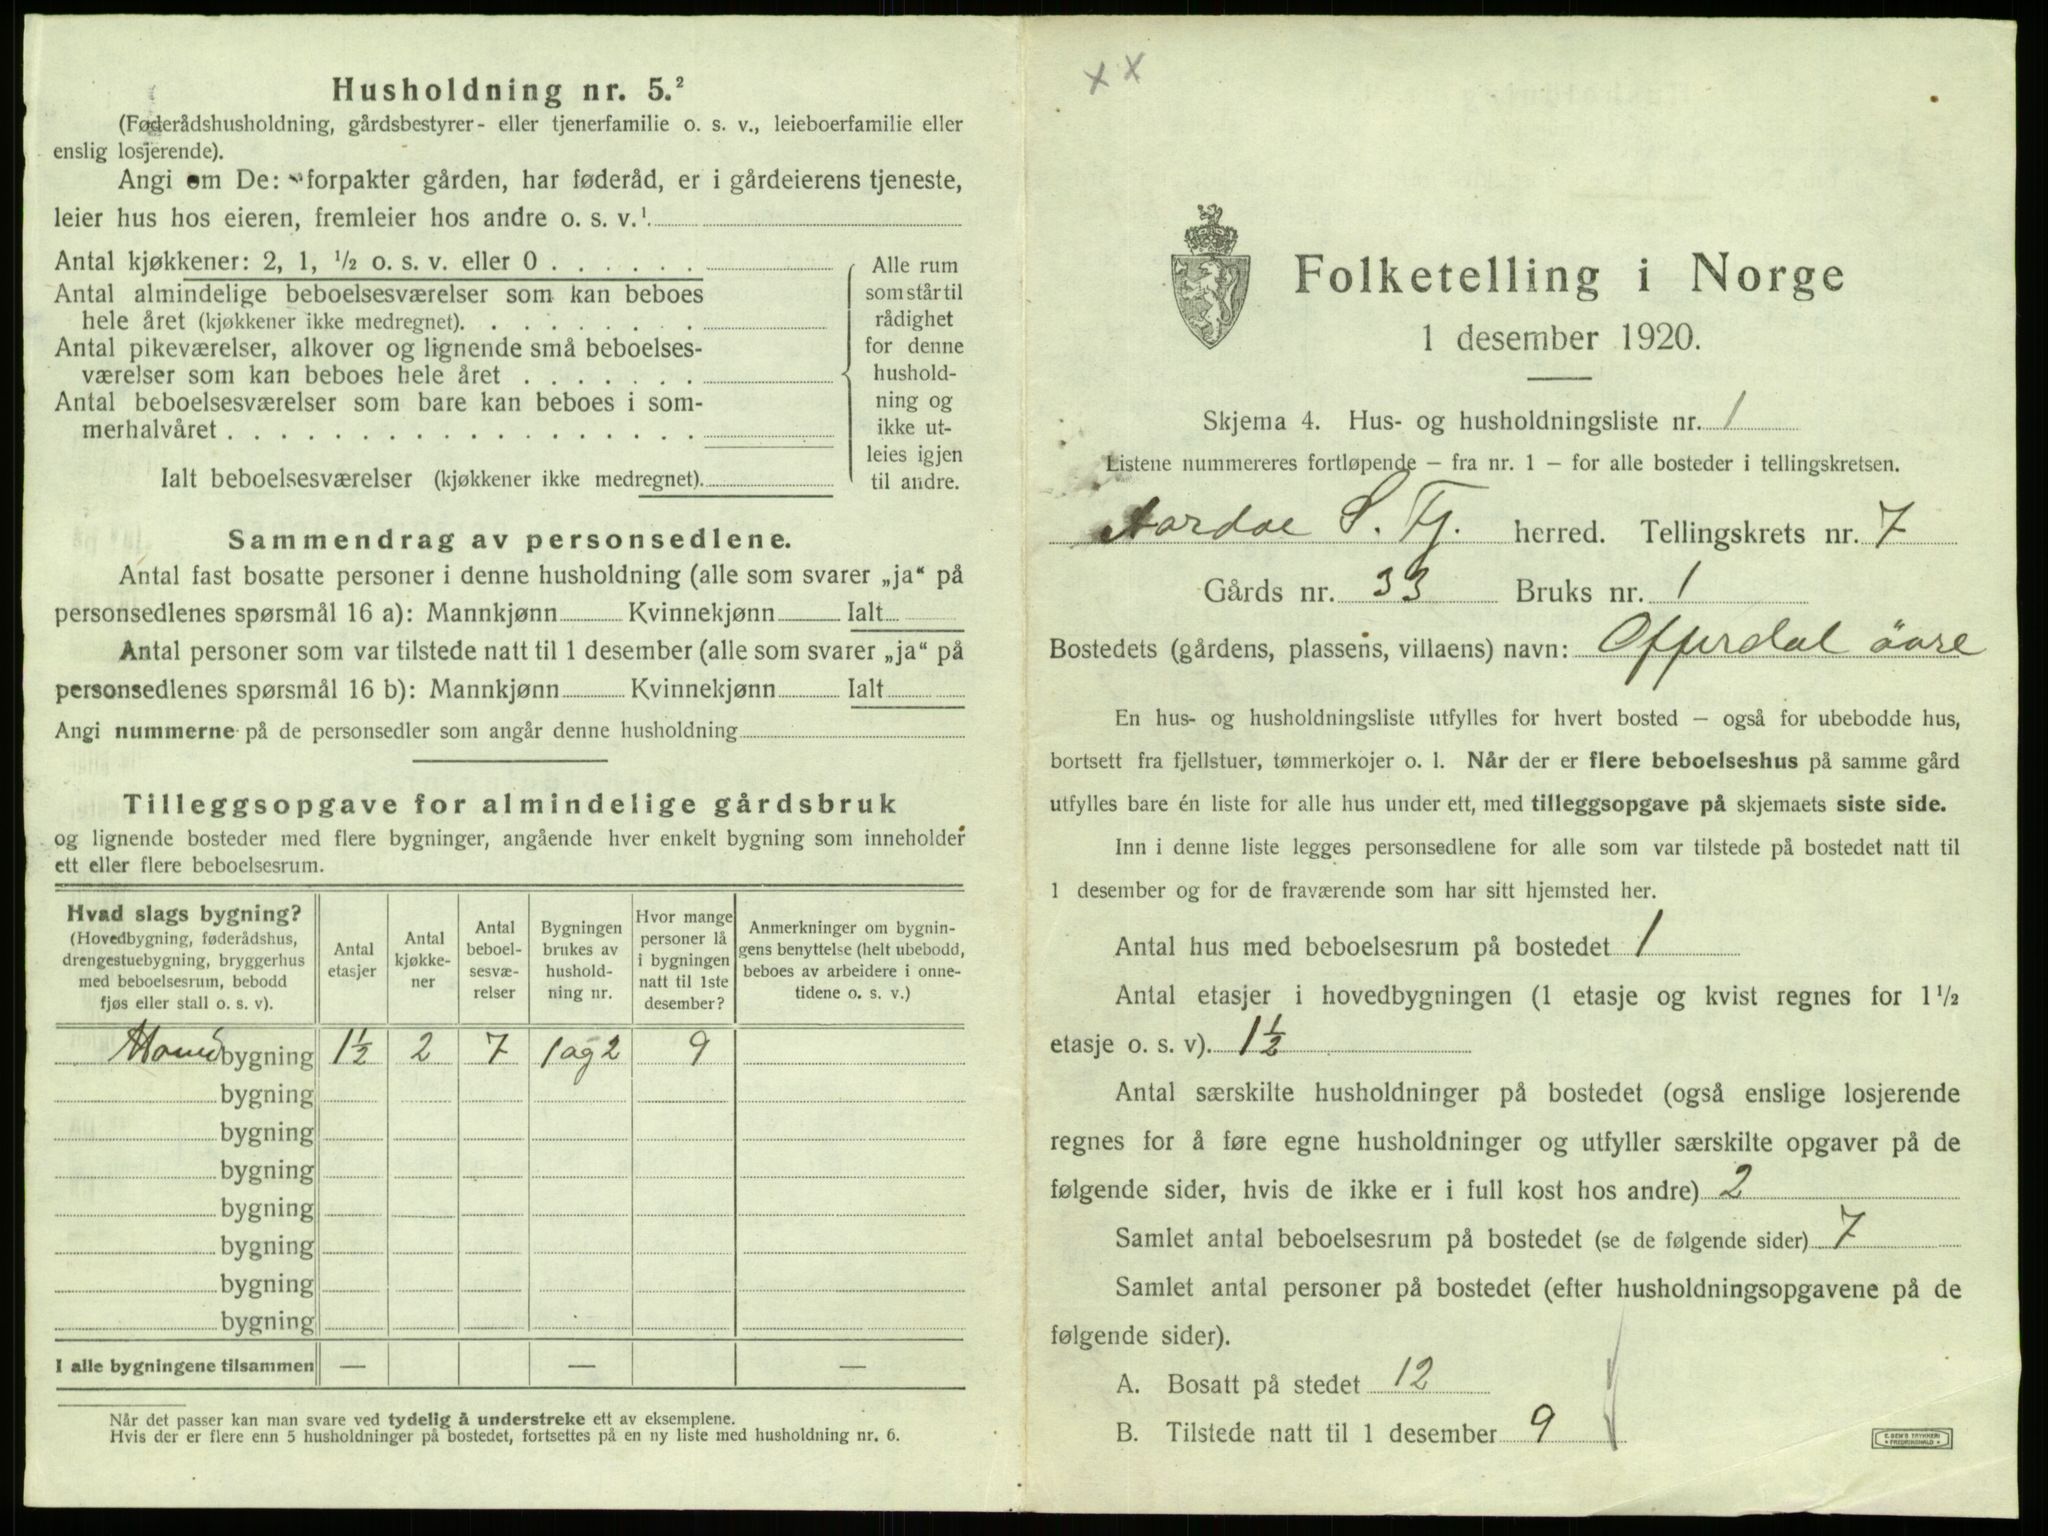 Husholdning nr. 5.²
(Føderådshusholdning, gårdsbestyrer- eller tjenerfamilie o. s. v., leieboerfamilie eller
enslig losjerende).
Angi om De: forpakter gården, har føderåd, er i gårdeierens tjeneste,
leier hus hos eieren, fremleier hos andre o. s. v.¹
Antal kjøkkener: 2, 1, ½ o. s. v. eller 0
Antal almindelige beboelsesværelser som kan beboes
hele året (kjøkkener ikke medregnet).
Antal pikeværelser, alkover og lignende små beboelses-
værelser som kan beboes hele året
Antal beboelsesværelser som bare kan beboes i som-
merhalvåret
Ialt beboelsesværelser (kjøkkener ikke medregnet)
Alle rum
som står til
rådighet
for denne
hushold-
ning og
ikke ut-
leies igjen
til andre.
Sammendrag av personsedlene.
Antal fast bosatte personer i denne husholdning (alle som svarer „ja“ på
personsedlenes spørsmål 16 a): Mannkjønn Kvinnekjønn Ialt
Antal personer som var tilstede natt til 1 desember (alle som svarer „ja“ på
personsedlenes spørsmål 16 b): Mannkjønn Kvinnekjønn Ialt
Angi nummerne på de personsedler som angår denne husholdning
Tilleggsopgave for almindelige gårdsbruk
og lignende bosteder med flere bygninger, angående hver enkelt bygning som inneholder
ett eller flere beboelsesrum.
Hvad slags bygning?
(Hovedbygning, føderådshus,
drengestuebygning, bryggerhus
med beboelsesrum, bebodd
fjøs eller stall o. s. v).
Antal
etasjer
Antal
kjøkke-
ner
Antal
beboel-
sesvæ-
relser
Bygningen
brukes av
hushold-
ning nr.
Hvor mange
personer lå
i bygningen
natt til 1ste
desember?
Anmerkninger om bygnin-
gens benyttelse (helt ubebodd,
beboes av arbeidere i onne-
tidene o. s. v.)
bygning 1½ 2 7 1 og 2 9
bygning
bygning
bygning
bygning
bygning
bygning
bygning
I alle bygningene tilsammen — — —
Når det passer kan man svare ved tydelig å understreke ett av eksemplene.
Hvis der er flere enn 5 husholdninger på bostedet, fortsettes på en ny liste med husholdning nr. 6.
x x
Folketelling i Norge
1 desember 1920.
Skjema 4. Hus- og husholdningsliste nr. 1
Listene nummereres fortløpende – fra nr. 1 – for alle bosteder i tellingskretsen.
Aardae S. Fj. herred. Tellingskrets nr. 7
Gårds nr. 33 Bruks nr. 1
Bostedets (gårdens, plassens, villaens) navn: Offerdal övre
En hus- og husholdningsliste utfylles for hvert bosted – også for ubebodde hus,
bortsett fra fjellstuer, tømmerkojer o. l. Når der er flere beboelseshus på samme gård
utfylles bare én liste for alle hus under ett, med tilleggsopgave på skjemaets siste side.
Inn i denne liste legges personsedlene for alle som var tilstede på bostedet natt til
1 desember og for de fraværende som har sitt hjemsted her.
Antal hus med beboelsesrum på bostedet 1
Antal etasjer i hovedbygningen (1 etasje og kvist regnes for 1½
etasje o. s. v). 1½
Antal særskilte husholdninger på bostedet (også enslige losjerende
regnes for å føre egne husholdninger og utfyller særskilte opgaver på de
følgende sider, hvis de ikke er i full kost hos andre) 2
Samlet antal beboelsesrum på bostedet (se de følgende sider) 7
Samlet antal personer på bostedet (efter husholdningsopgavene på de
følgende sider).
A. Bosatt på stedet 12
B. Tilstede natt til 1 desember 9